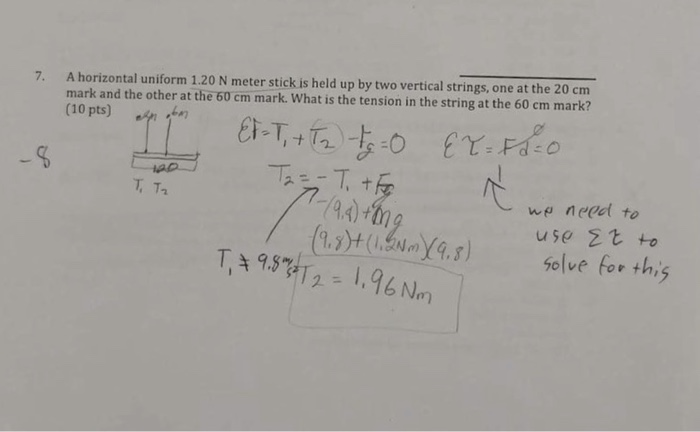 7. A horizontal uniform 1.20 N meter stick is held up by two vertical strings, one at the 20 cm
mark and the other at the 60 cm mark. What is the tension in the string at the 60 cm mark?
(10 pts)
-8
120
T₁ T₂
ΣF=T₁+T₂-Fg=0
T₂=-T₁+Fg
-(9.8)+mg
(9.8)+(1.2Nm)(9.8)
T₂=1.96Nm
T₁≠9.8m/s²
Στ=Fd=0
we need to
use Στ to
solve for this